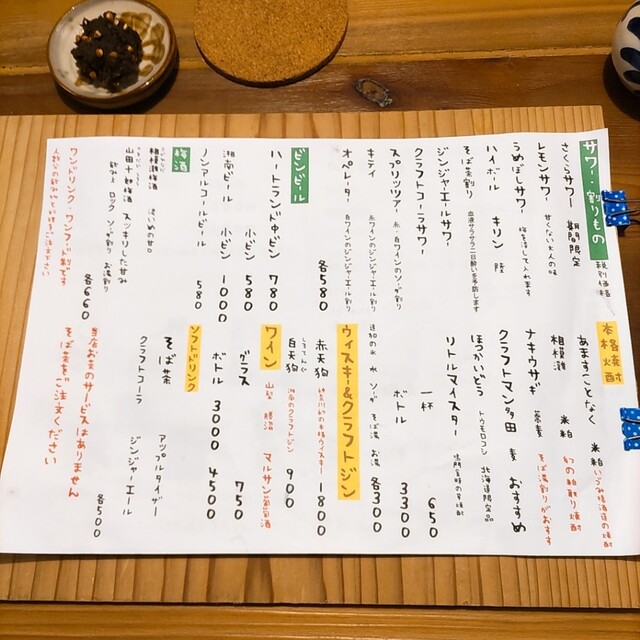 サワー・割りもの 税別価格
さくらサワー 期間限定
レモンサワー 甘くない大人の味
うめぼしサワー 梅を漬して入れます
ハイボール キリン 陸
そば茶割り 血液サラサラ二日酔いを予防します
ジンジャエールサワー
クラフトコーラサワー
スプリッツァー 赤・白ワインのソーダ割り
キティ 赤ワインのジンジャエール割り
オペレーター 白ワインのジンジャエール割り
各580
ビンビール
ハートランド中ビン 780
小ビン 580
湘南ビール 小ビン 1000
ノンアルコールビール 580
梅酒
相模灘梅酒 濃いめの甘口
山田十郎梅酒 スッキリした甘み
飲み方 ロック ソーダ割り お湯割り
各660
ワンドリンク・ワンフード制です
本格焼酎
あますことなく 米粕
相模灘 米粕 幻の粕取り焼酎
ナキウサギ 蕎麦 そば湯割りがおすすめ
クラフトマン多田 麦 おすすめ
ほっかいどう トウモロコシ 北海道限定品
リトルマイスター
一杯 650
ボトル 3300
追加の氷 水 ソーダ そば湯 お湯 各300
ウィスキー&クラフトジン
赤天狗 1800
白天狗 湘南のクラフトジン 900
ワイン 山梨 勝沼 マルサン葡萄酒
グラス 750
ボトル 3000 4500
ソフトドリンク
そば茶 アップルタイザー
クラフトコーラ ジンジャーエール
各500
当店お茶のサービスはありません
そば茶をご注文ください